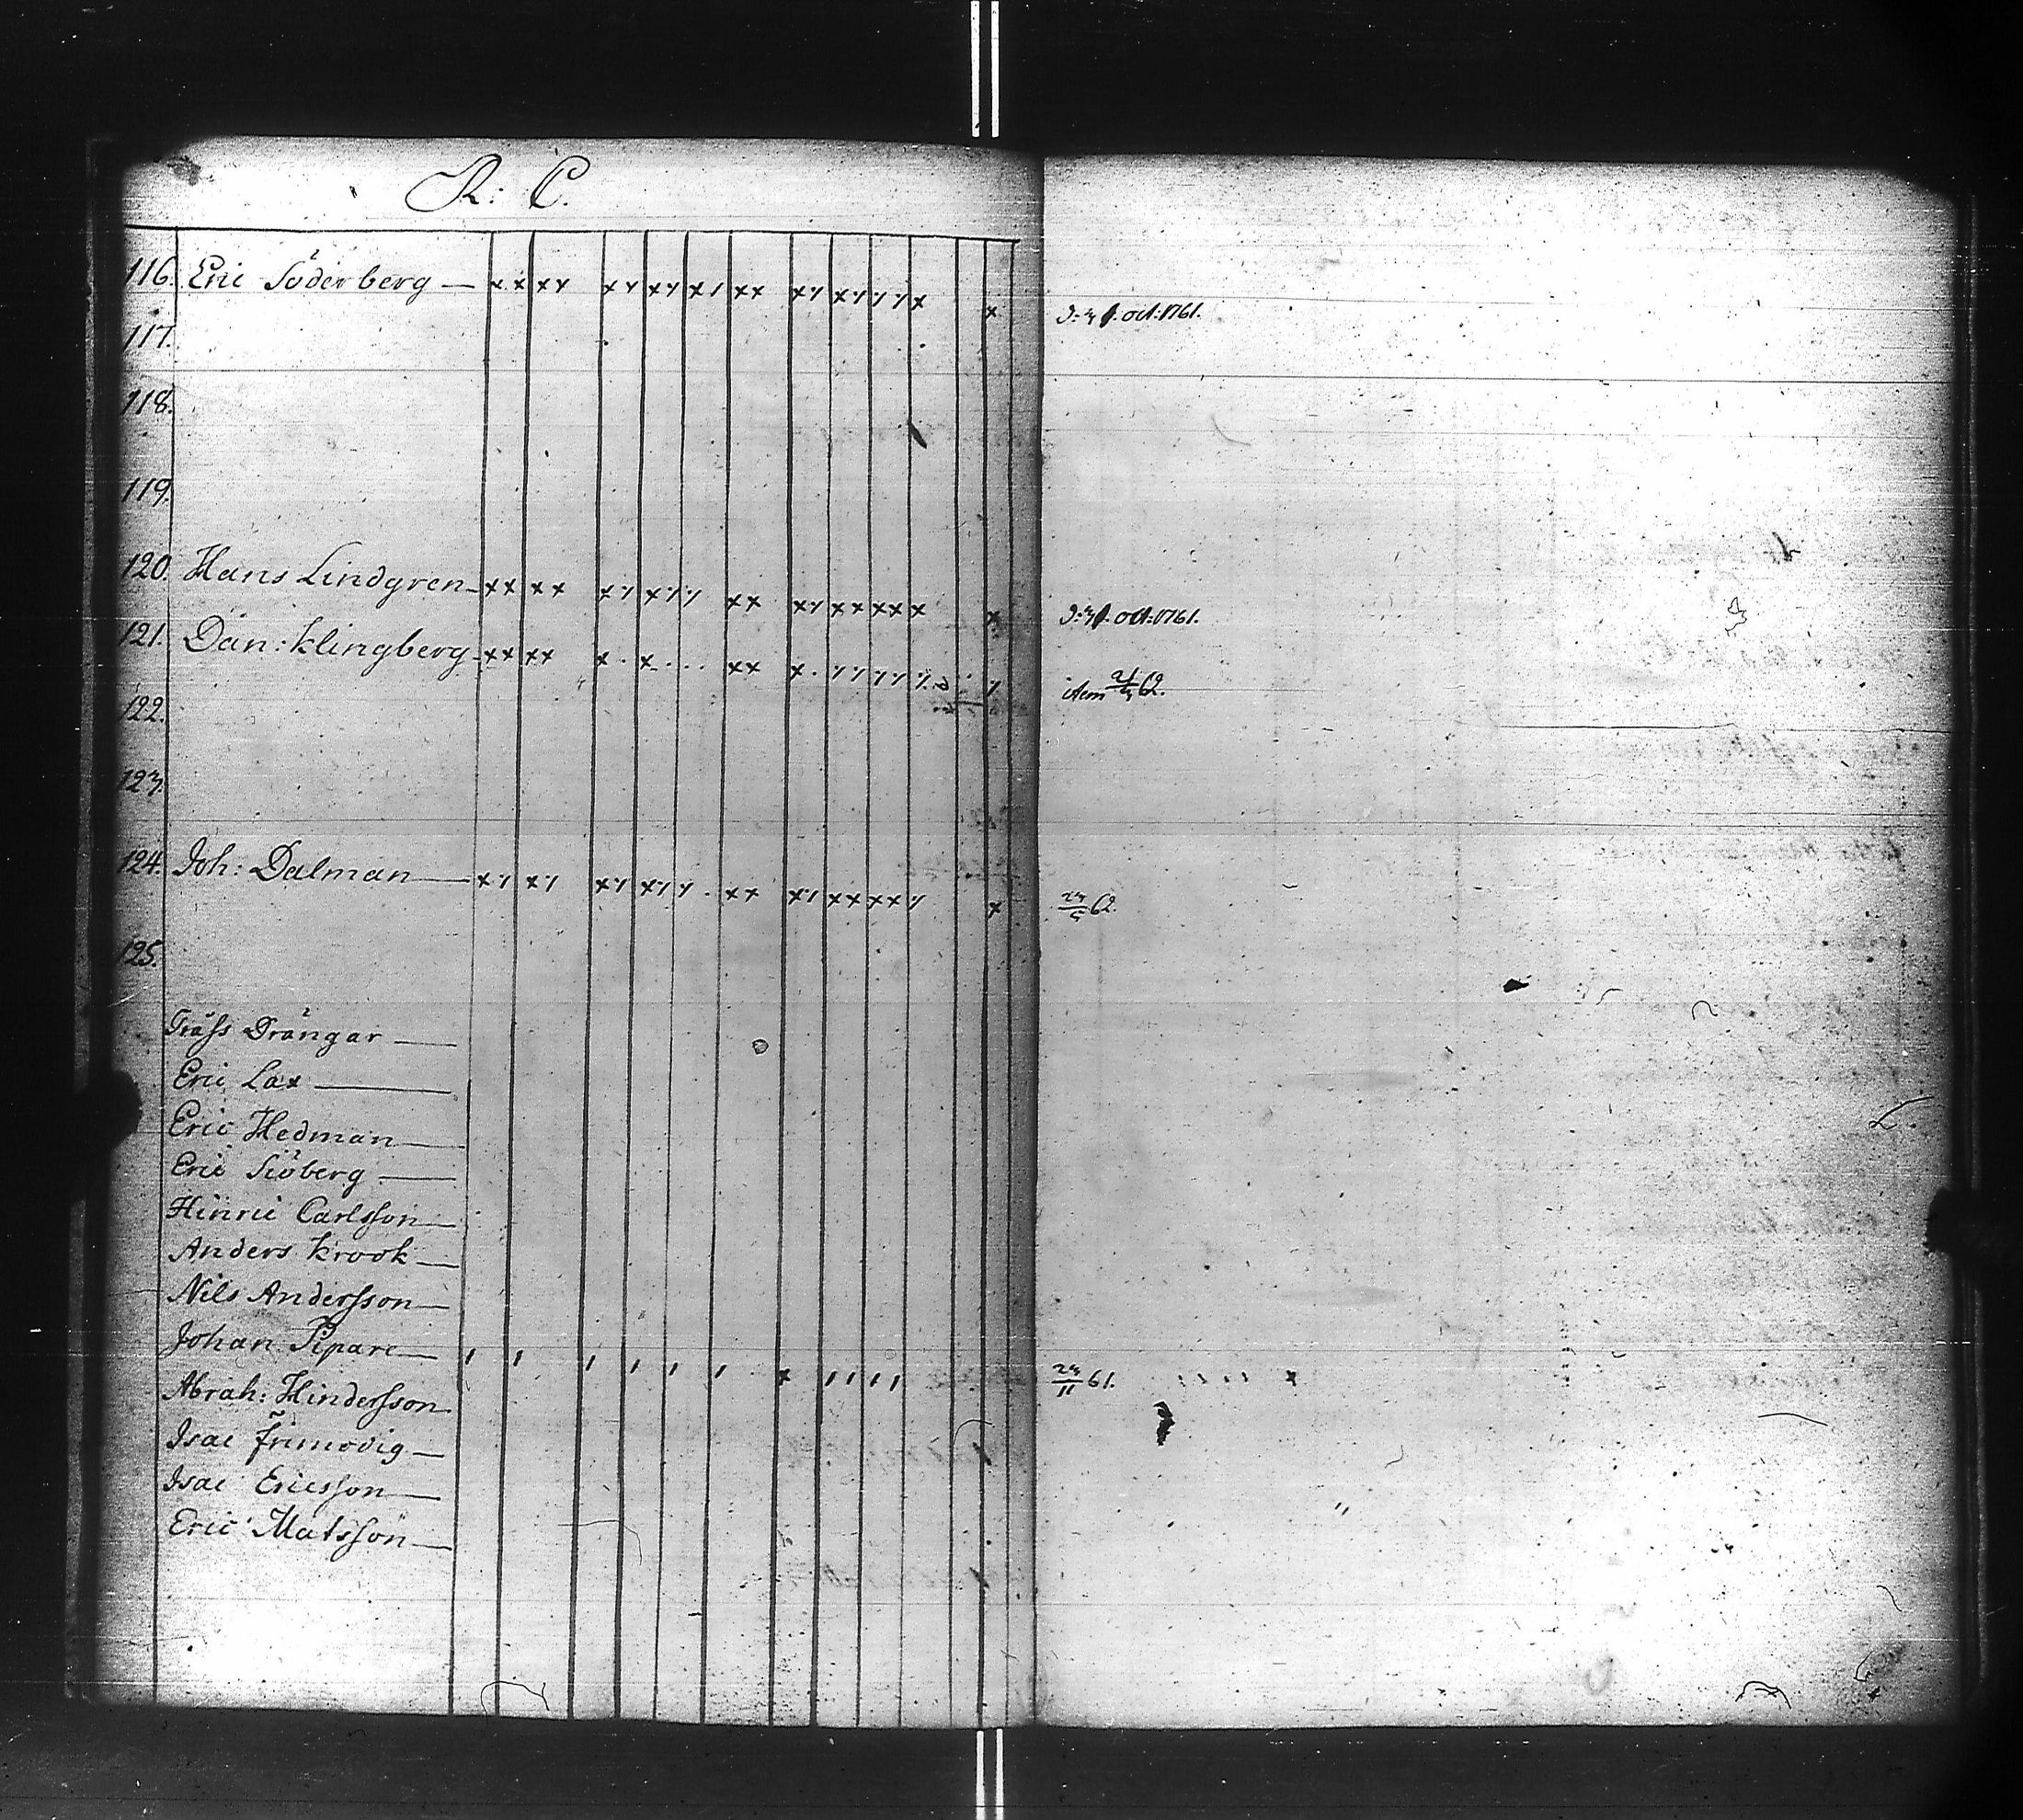 R: C.
116. Eric Söderberg — x x x y x y x y x 1 x x x y x y y y x x oct: 1761.
117.
118.
119.
120. Hans Lindgren x x x x x y x y y x x x y x x x x x x oct: 1761.
121. Dan: Klingberg x x x x x . x . . . x x x . y y y y y item 62.
122.
123.
124. Joh: Dalman — x y x y x y x y y . x x x y x x x x y x 62.
125.
Träss Drängar —
Eric Lax —
Eric Hedman —
Eric Siöberg —
Hinric Carlsson —
Anders Krook —
Nils Andersson —
Johan Pipare — 1 1 1 1 1 1 x 1 1 1 1 23/11 61. 1 1 1 1 x
Abrah: Hindersson
Isac
Isac Ericsson —
Eric Matsson —